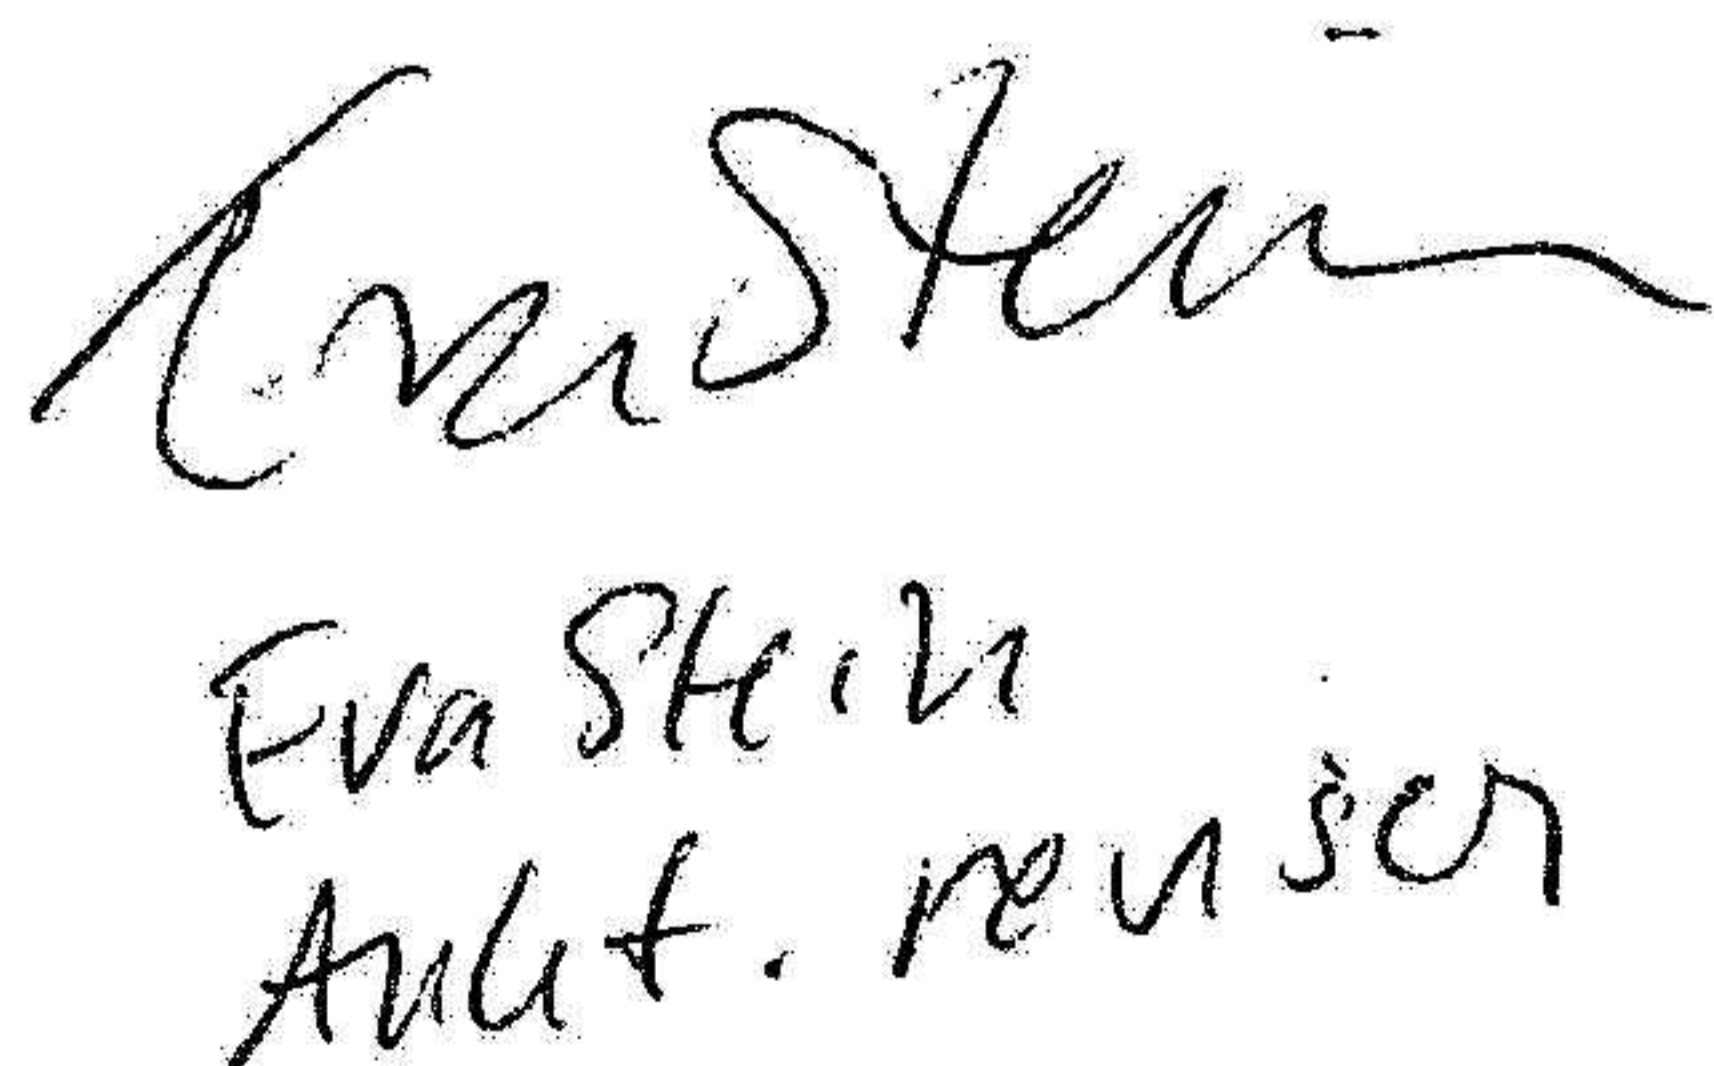 Eva Stein
Eva Stein
Aukt. revisor